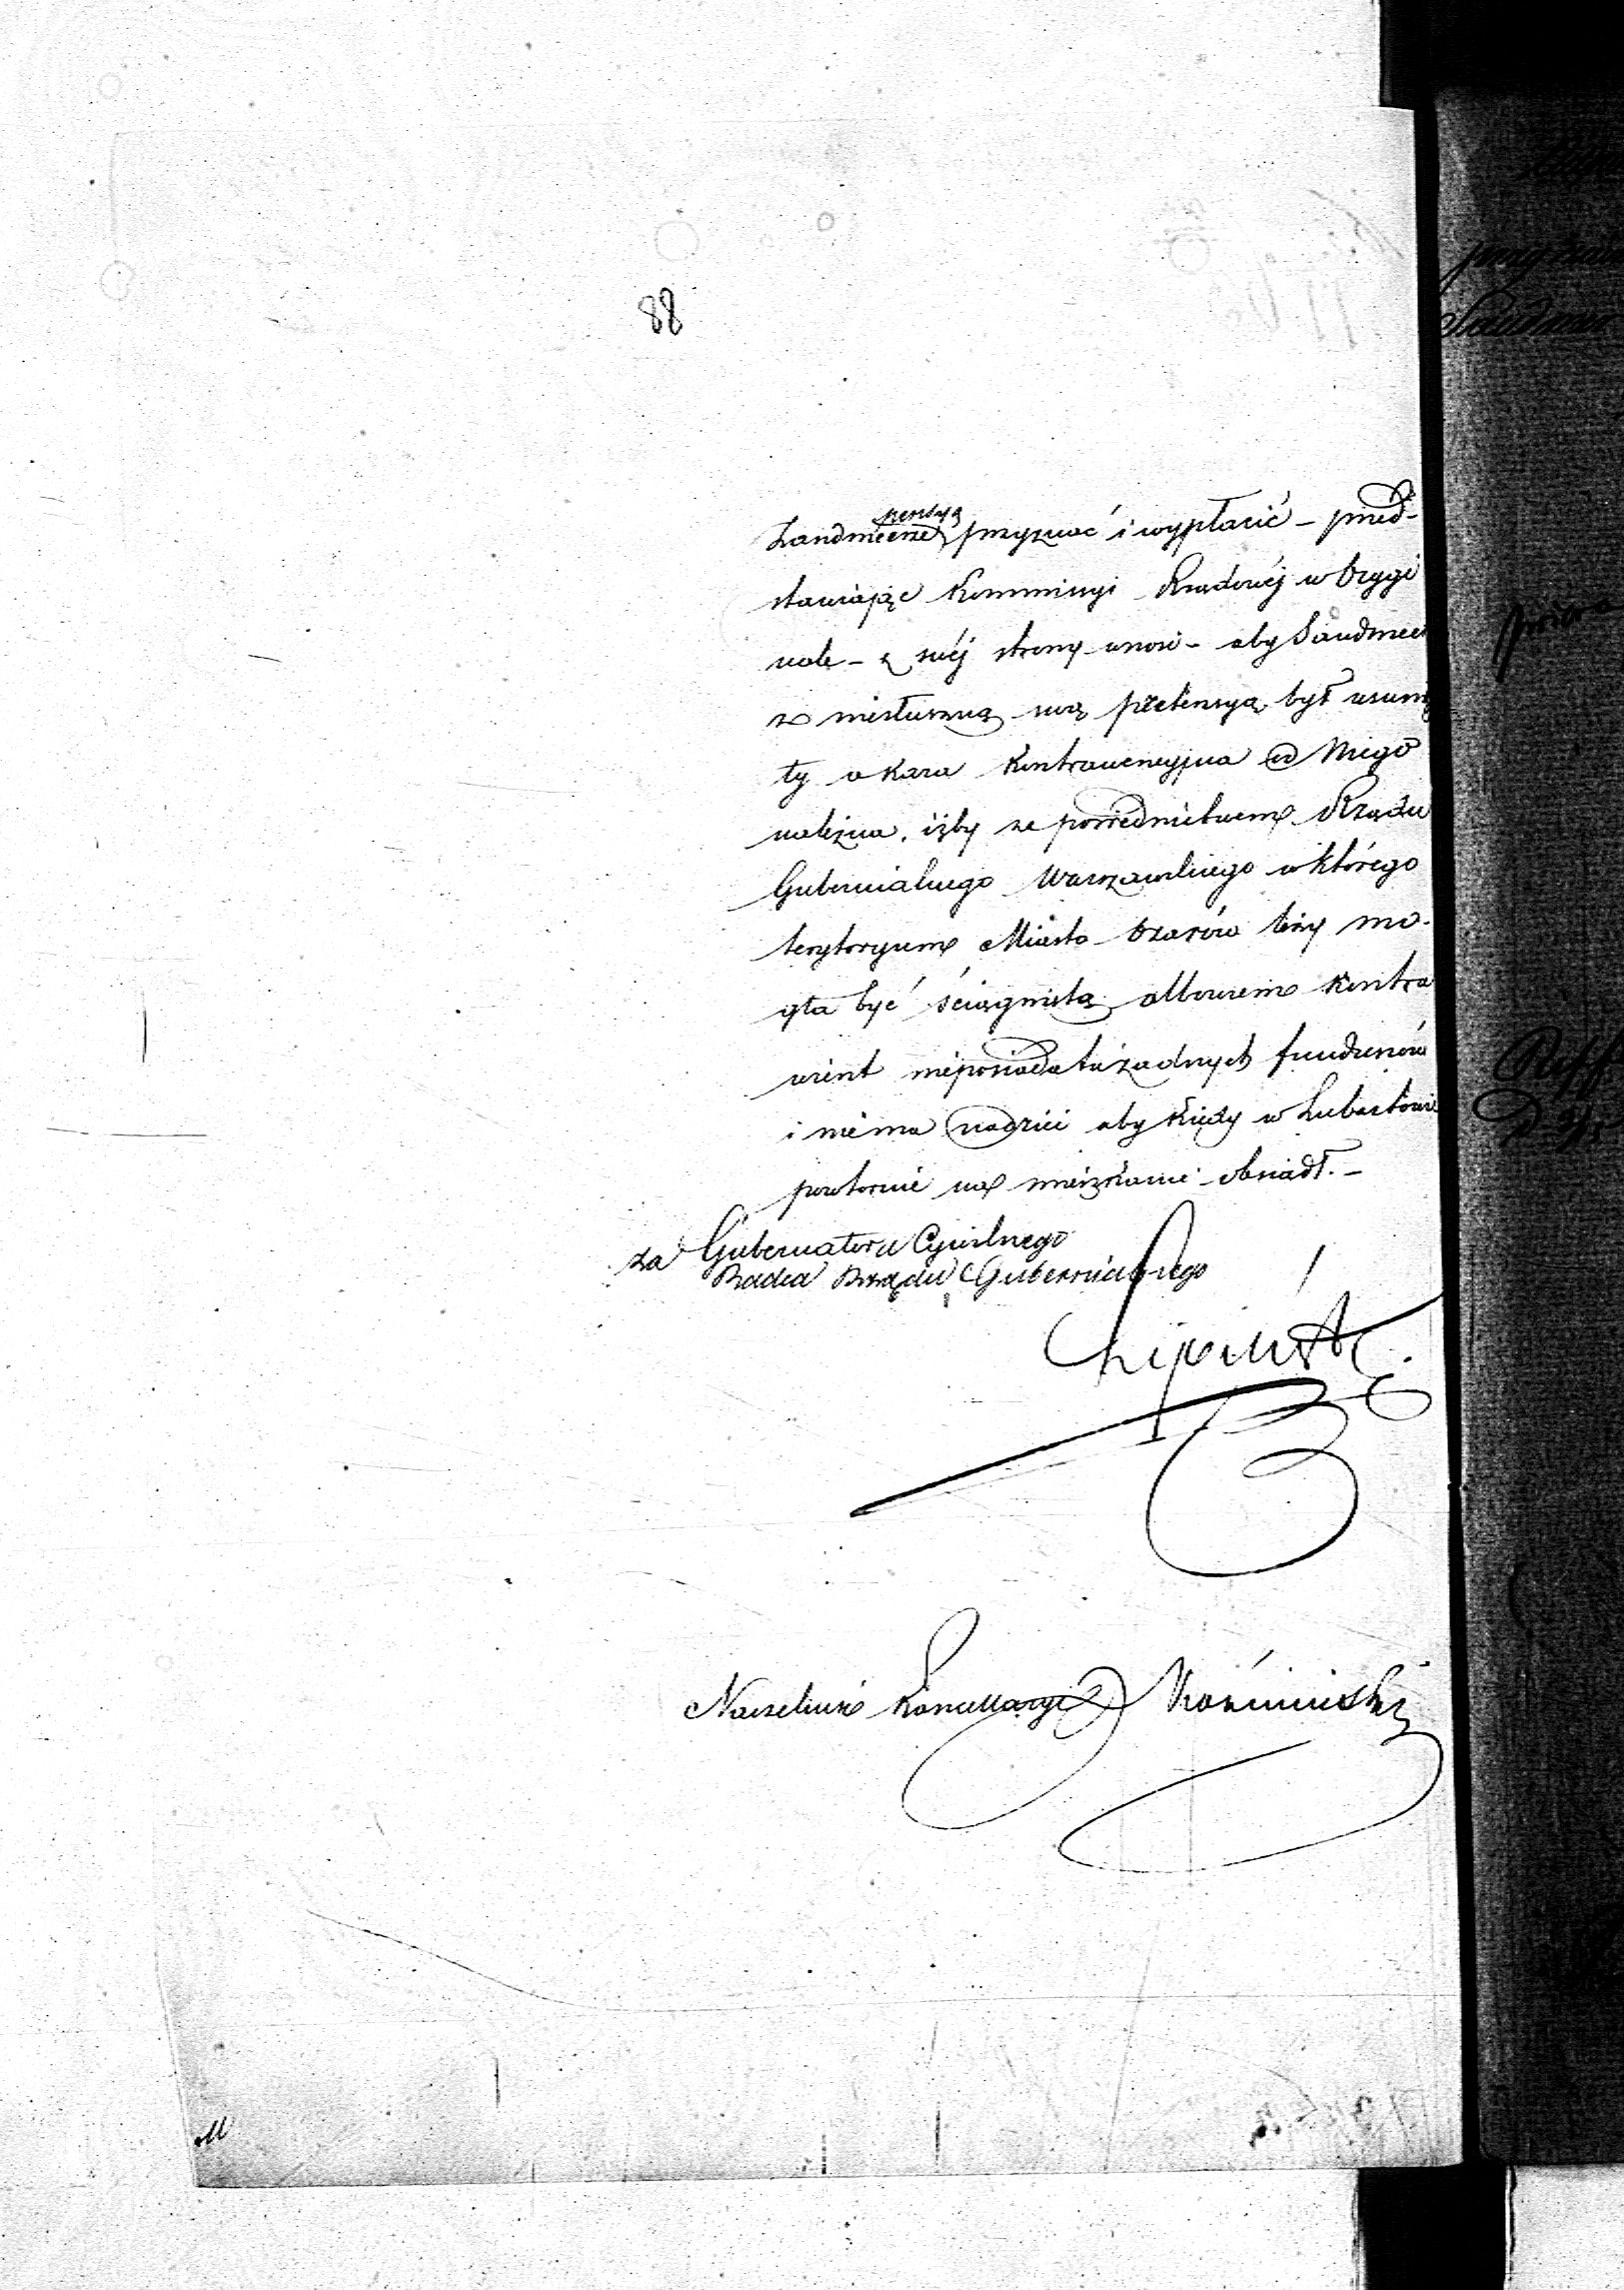 88
pensyą
Landmeerze przyznać i wypłacić – przed-
stawiając Kommissyi Rządowéj w Orygi
nale – z swéj strony wnosi – aby Landmeer
z niesłuszną swą pretensyą był usunię
ty a kara kontrawencyjna od Niego
należna, iżby za pośrednictwem Rządu
Gubernialnego Warszawskiego w którego
terytoryum Miasto Ozorów leży mo-
gła być ściągniętą albowiem kontra
wient nieposiada tu żadnych funduszów
i niéma nadziei aby kiedy w Lubartowie
powtornie na mieszkanie osiadł. –
za Gubernatora Cywilnego
Radca Rządu Gubernialnego
Lipiński
Naczelnik Kancellaryi